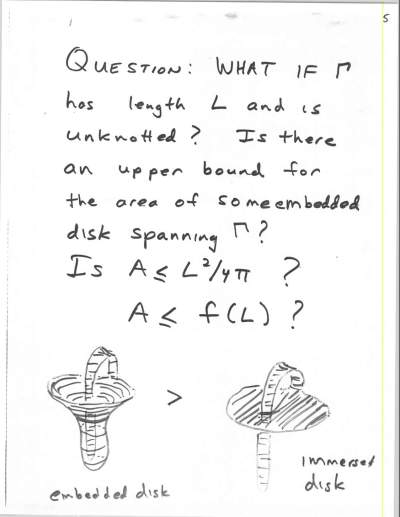 5
QUESTION: WHAT IF Γ
has length L and is
unknotted? Is there
an upper bound for
the area of some embedded
disk spanning Γ?
Is A ≤ L²/4π ?
A ≤ f(L) ?
>
embedded disk
immersed
disk